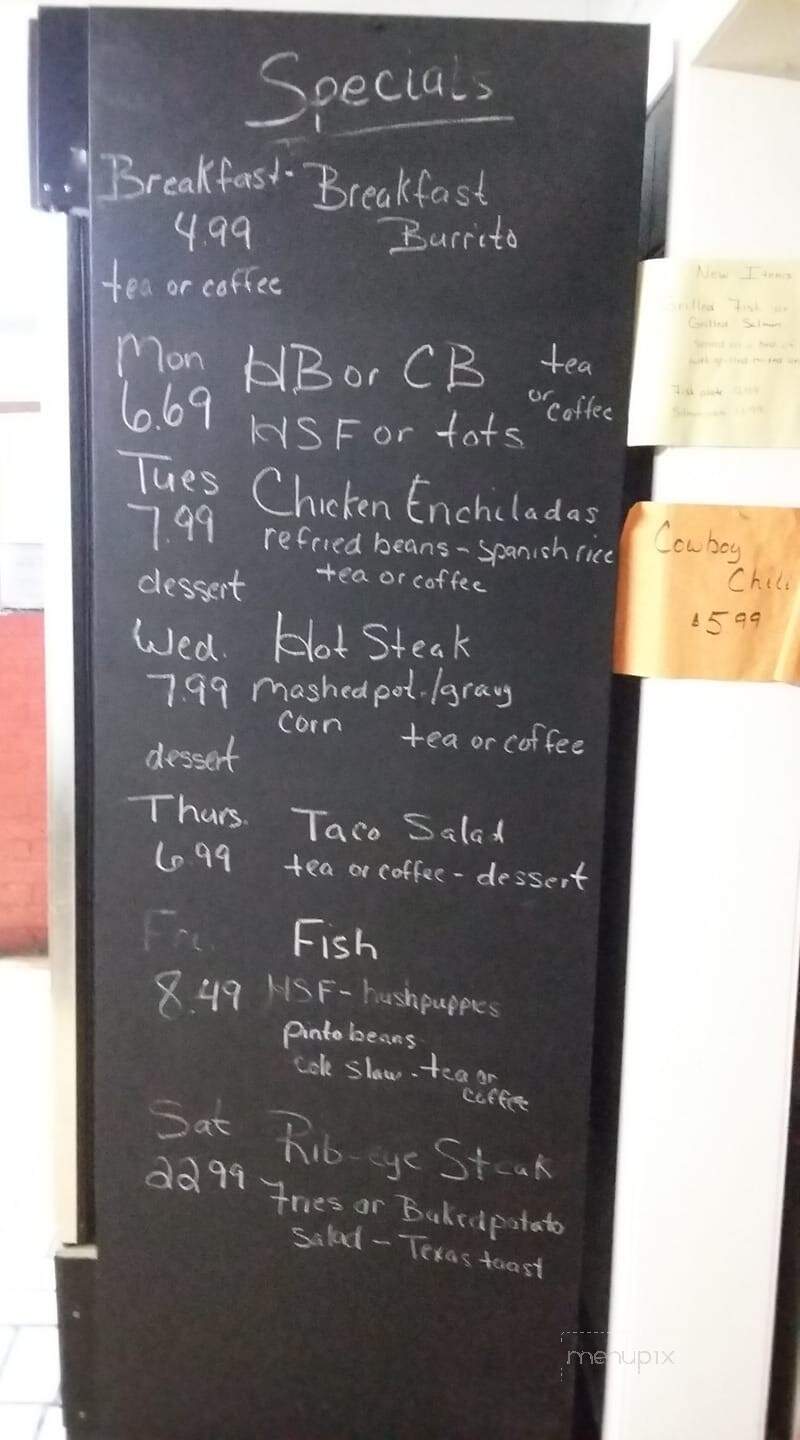 Specials
Breakfast - Breakfast
4.99 Burrito
tea or coffee
Mon HB or CB tea
6.69 or coffee
HSF or tots
Tues Chicken Enchiladas
7.99 refried beans - spanish rice
dessert tea or coffee
Wed. Hot Steak
7.99 mashed pot./gravy
corn tea or coffee
dessert
Thurs. Taco Salad
6.99 tea or coffee - dessert
Fri. Fish
8.49 HSF - hushpuppies
pinto beans
cole slaw - tea or
coffee
Sat Rib-eye Steak
22 99 Fries or Baked potato
Salad - Texas toast
New Items
Grilled Fish or
Grilled Salmon
Cowboy
Chili
$5 99
menupix